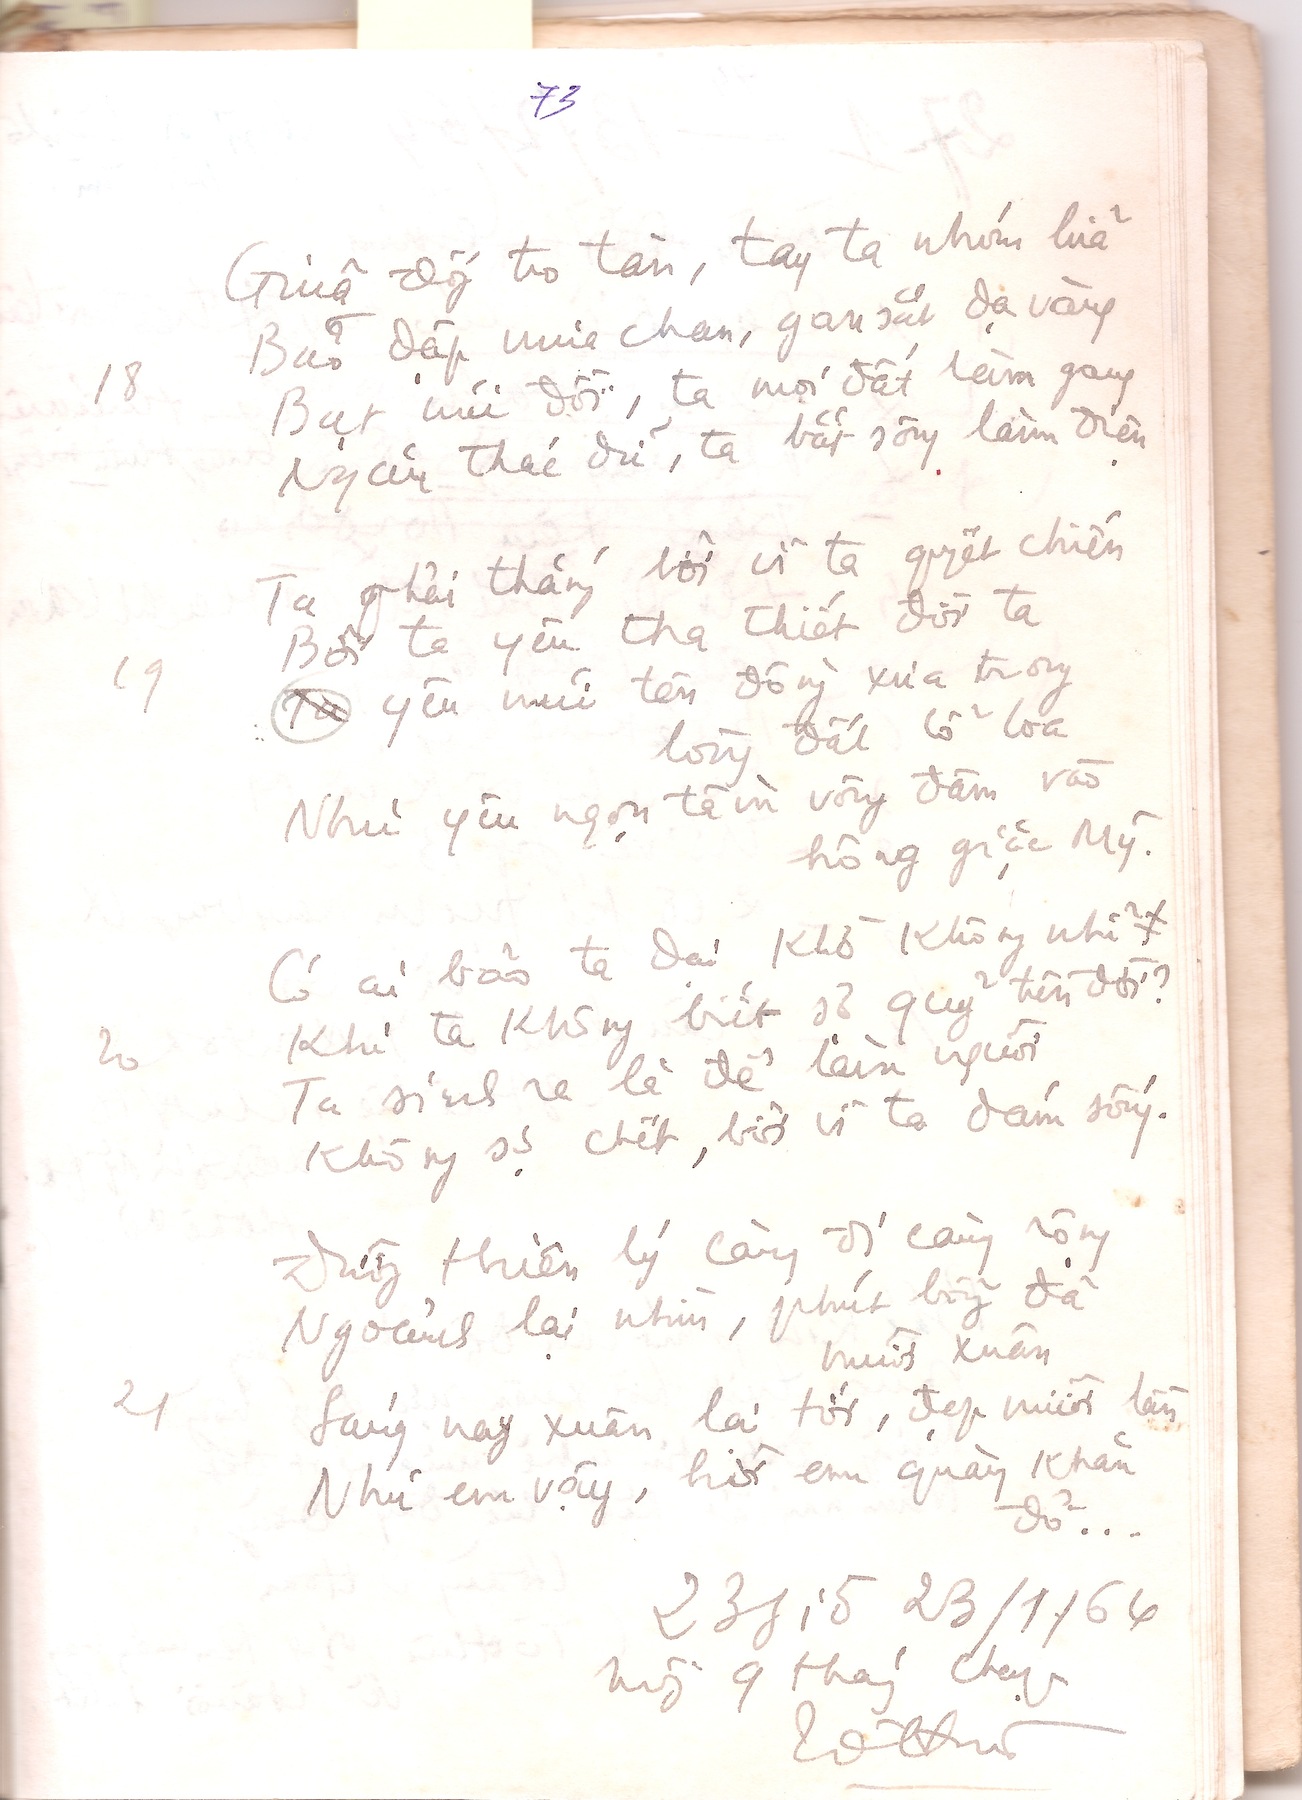 73
Giữa đống tro tàn, tay ta nhóm lửa
Bão dập mưa chan, gan sắt dạ vàng
18
Bạt núi đồi, ta moi đất làm gang
Ngăn thác dữ, ta bắt sông làm điện
Ta phải thắng bởi vì ta quyết chiến
Bởi ta yêu tha thiết đời ta
19
yêu mũi tên đồng xưa trong
lòng đất Cổ Loa
Như yêu ngọn tầm vông đâm vào
họng giặc Mỹ.
Có ai bảo ta dại khờ không nhỉ?
Khi ta không biết sợ quỷ trên đời?
20
Ta sinh ra là để làm người
Không sợ chết, bởi vì ta dám sống.
Đường thiên lý càng đi càng rộng
Ngoảnh lại nhìn, phút bỗng đã
mười xuân
21
Sáng nay xuân lại tới, đẹp mười lần
Như em vậy, hỡi em quàng khăn
đỏ...
23 giờ 23/1/64
mồng 9 tháng chạp
Tố Hữu